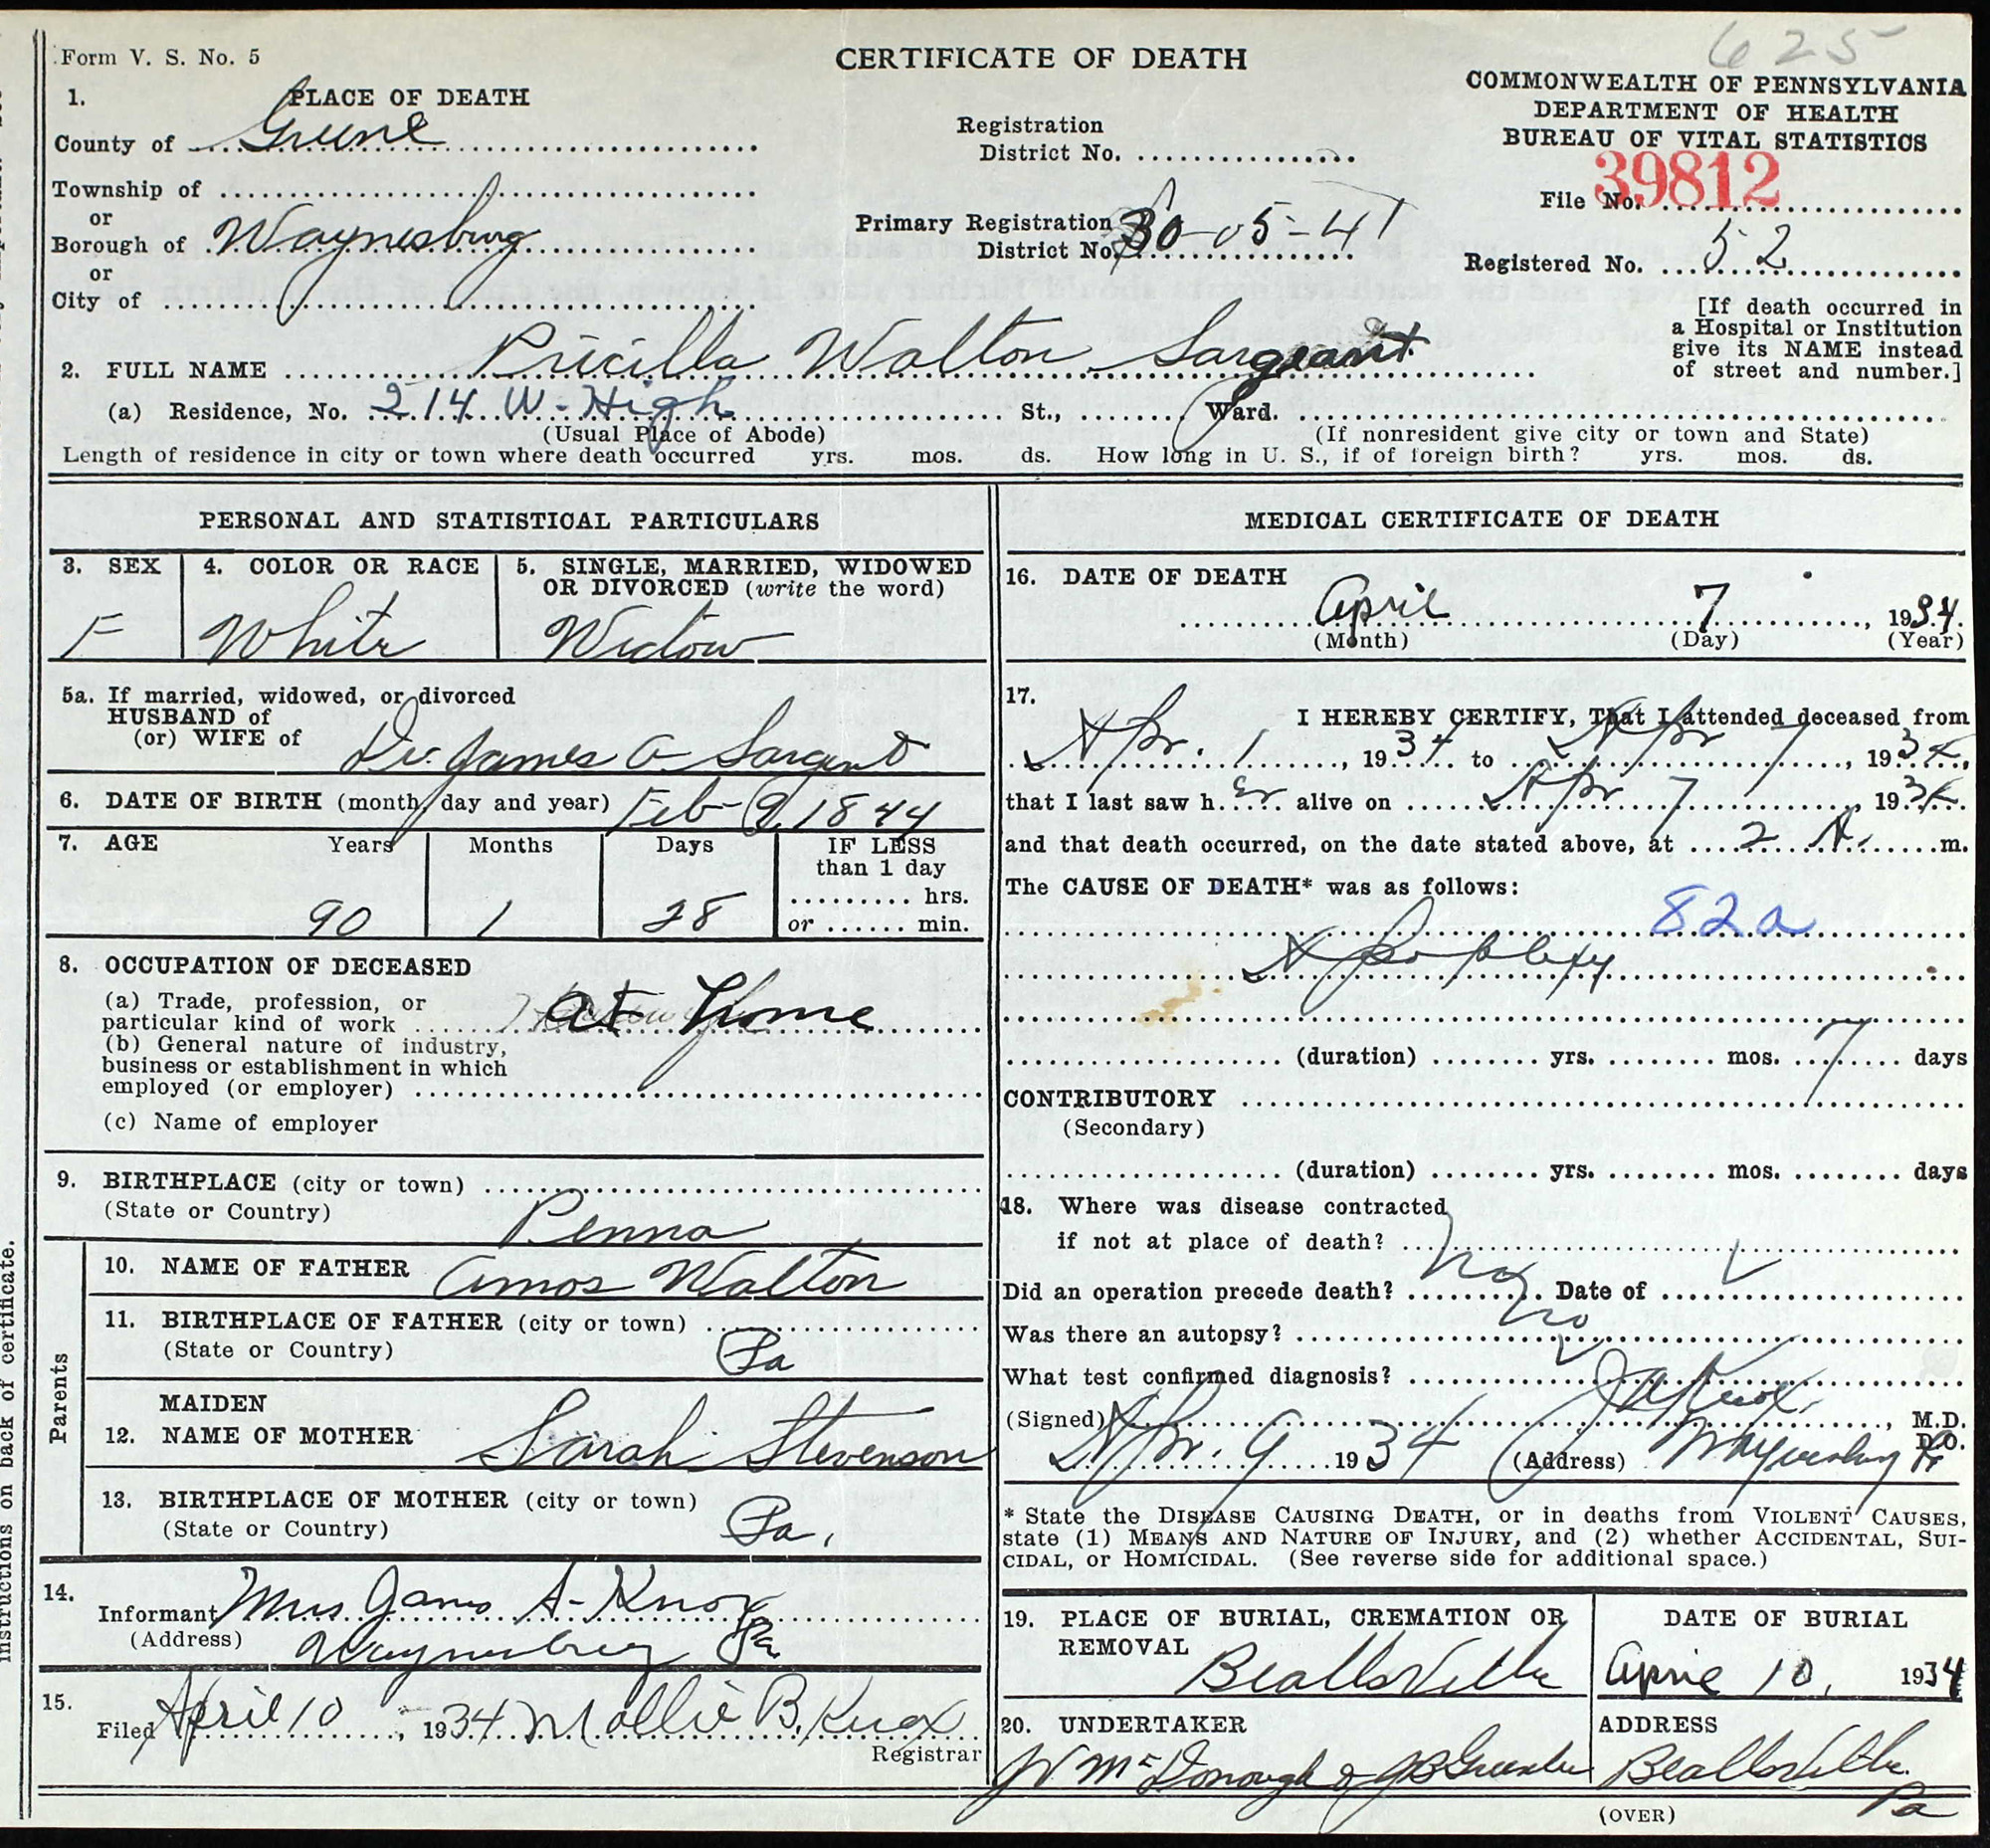 625
Form V. S. No. 5
CERTIFICATE OF DEATH
COMMONWEALTH OF PENNSYLVANIA
DEPARTMENT OF HEALTH
BUREAU OF VITAL STATISTICS
1. PLACE OF DEATH
County of Greene
Township of
or
Borough of Waynesburg
or
City of
Registration
District No.
Primary Registration
District No. 30-05-41
39812
File No.
Registered No. 52
[If death occurred in
a Hospital or Institution
give its NAME instead
of street and number.]
2. FULL NAME Pricilla Walton Sargeant
(a) Residence, No. 214 W-High St., Ward.
(Usual Place of Abode) (If nonresident give city or town and State)
Length of residence in city or town where death occurred yrs. mos. ds. How long in U. S., if of foreign birth? yrs. mos. ds.
PERSONAL AND STATISTICAL PARTICULARS
3. SEX 4. COLOR OR RACE 5. SINGLE, MARRIED, WIDOWED
OR DIVORCED (write the word)
F White Widow
5a. If married, widowed, or divorced
HUSBAND of
(or) WIFE of Dr. James A Sargent
6. DATE OF BIRTH (month, day and year) Feb-9, 1844
7. AGE Years Months Days IF LESS
than 1 day
hrs.
90 1 28 or min.
8. OCCUPATION OF DECEASED
(a) Trade, profession, or
particular kind of work at home
(b) General nature of industry,
business or establishment in which
employed (or employer)
(c) Name of employer
9. BIRTHPLACE (city or town)
(State or Country) Penna
Parents
10. NAME OF FATHER Amos Walton
11. BIRTHPLACE OF FATHER (city or town)
(State or Country) Pa
MAIDEN
12. NAME OF MOTHER Sarah Stevenson
13. BIRTHPLACE OF MOTHER (city or town)
(State or Country) Pa.
14. Informant Mrs James A-Knox
(Address) Waynesburg Pa
15. Filed April 10, 1934 Mollie B. Knox
Registrar
MEDICAL CERTIFICATE OF DEATH
16. DATE OF DEATH
April 7, 1934
(Month) (Day) (Year)
17. I HEREBY CERTIFY, That I attended deceased from
Apr. 1, 1934 to Apr 7, 1934,
that I last saw her alive on Apr 7, 1934.
and that death occurred, on the date stated above, at 2 A. m.
The CAUSE OF DEATH* was as follows:
82a
Apoplexy
(duration) yrs. mos. 7 days
CONTRIBUTORY
(Secondary)
(duration) yrs. mos. days
18. Where was disease contracted
if not at place of death?
Did an operation precede death? No Date of
Was there an autopsy? No
What test confirmed diagnosis?
(Signed) JA Knox, M.D.
D.O.
Apr. 9 1934 (Address) Waynesburg Pa
* State the DISEASE CAUSING DEATH, or in deaths from VIOLENT CAUSES,
state (1) MEANS AND NATURE OF INJURY, and (2) whether ACCIDENTAL, SUI-
CIDAL, or HOMICIDAL. (See reverse side for additional space.)
19. PLACE OF BURIAL, CREMATION OR
REMOVAL
Beallsville
DATE OF BURIAL
April 10, 1934
20. UNDERTAKER
W McDonough & JB
ADDRESS
Beallsville
Pa
(OVER)
instructions on back of certificate.